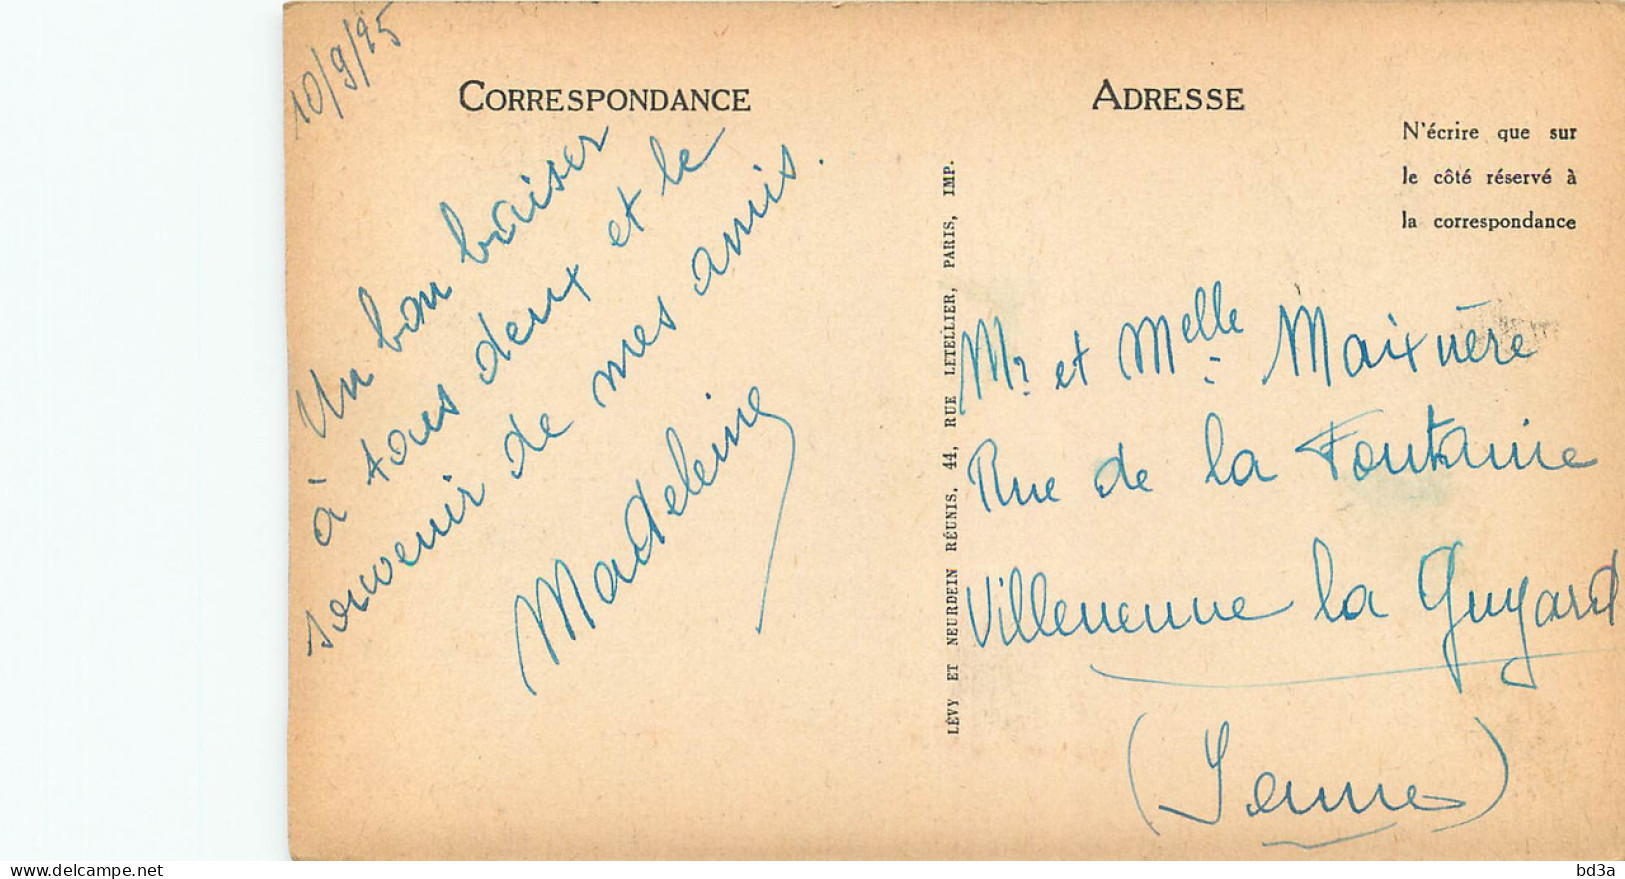 10/9/25
CORRESPONDANCE
Un bon baiser
à tous deux et le
souvenir de mes amis.
Madeleine
LÉVY ET NEURDEIN RÉUNIS, 44, RUE LETELLIER, PARIS, IMP.
ADRESSE
N'écrire que sur
le côté réservé à
la correspondance
Mr et Melle
Rue de la Fontaine
Villeneuve la Guyard
(Yonne)
bd3a